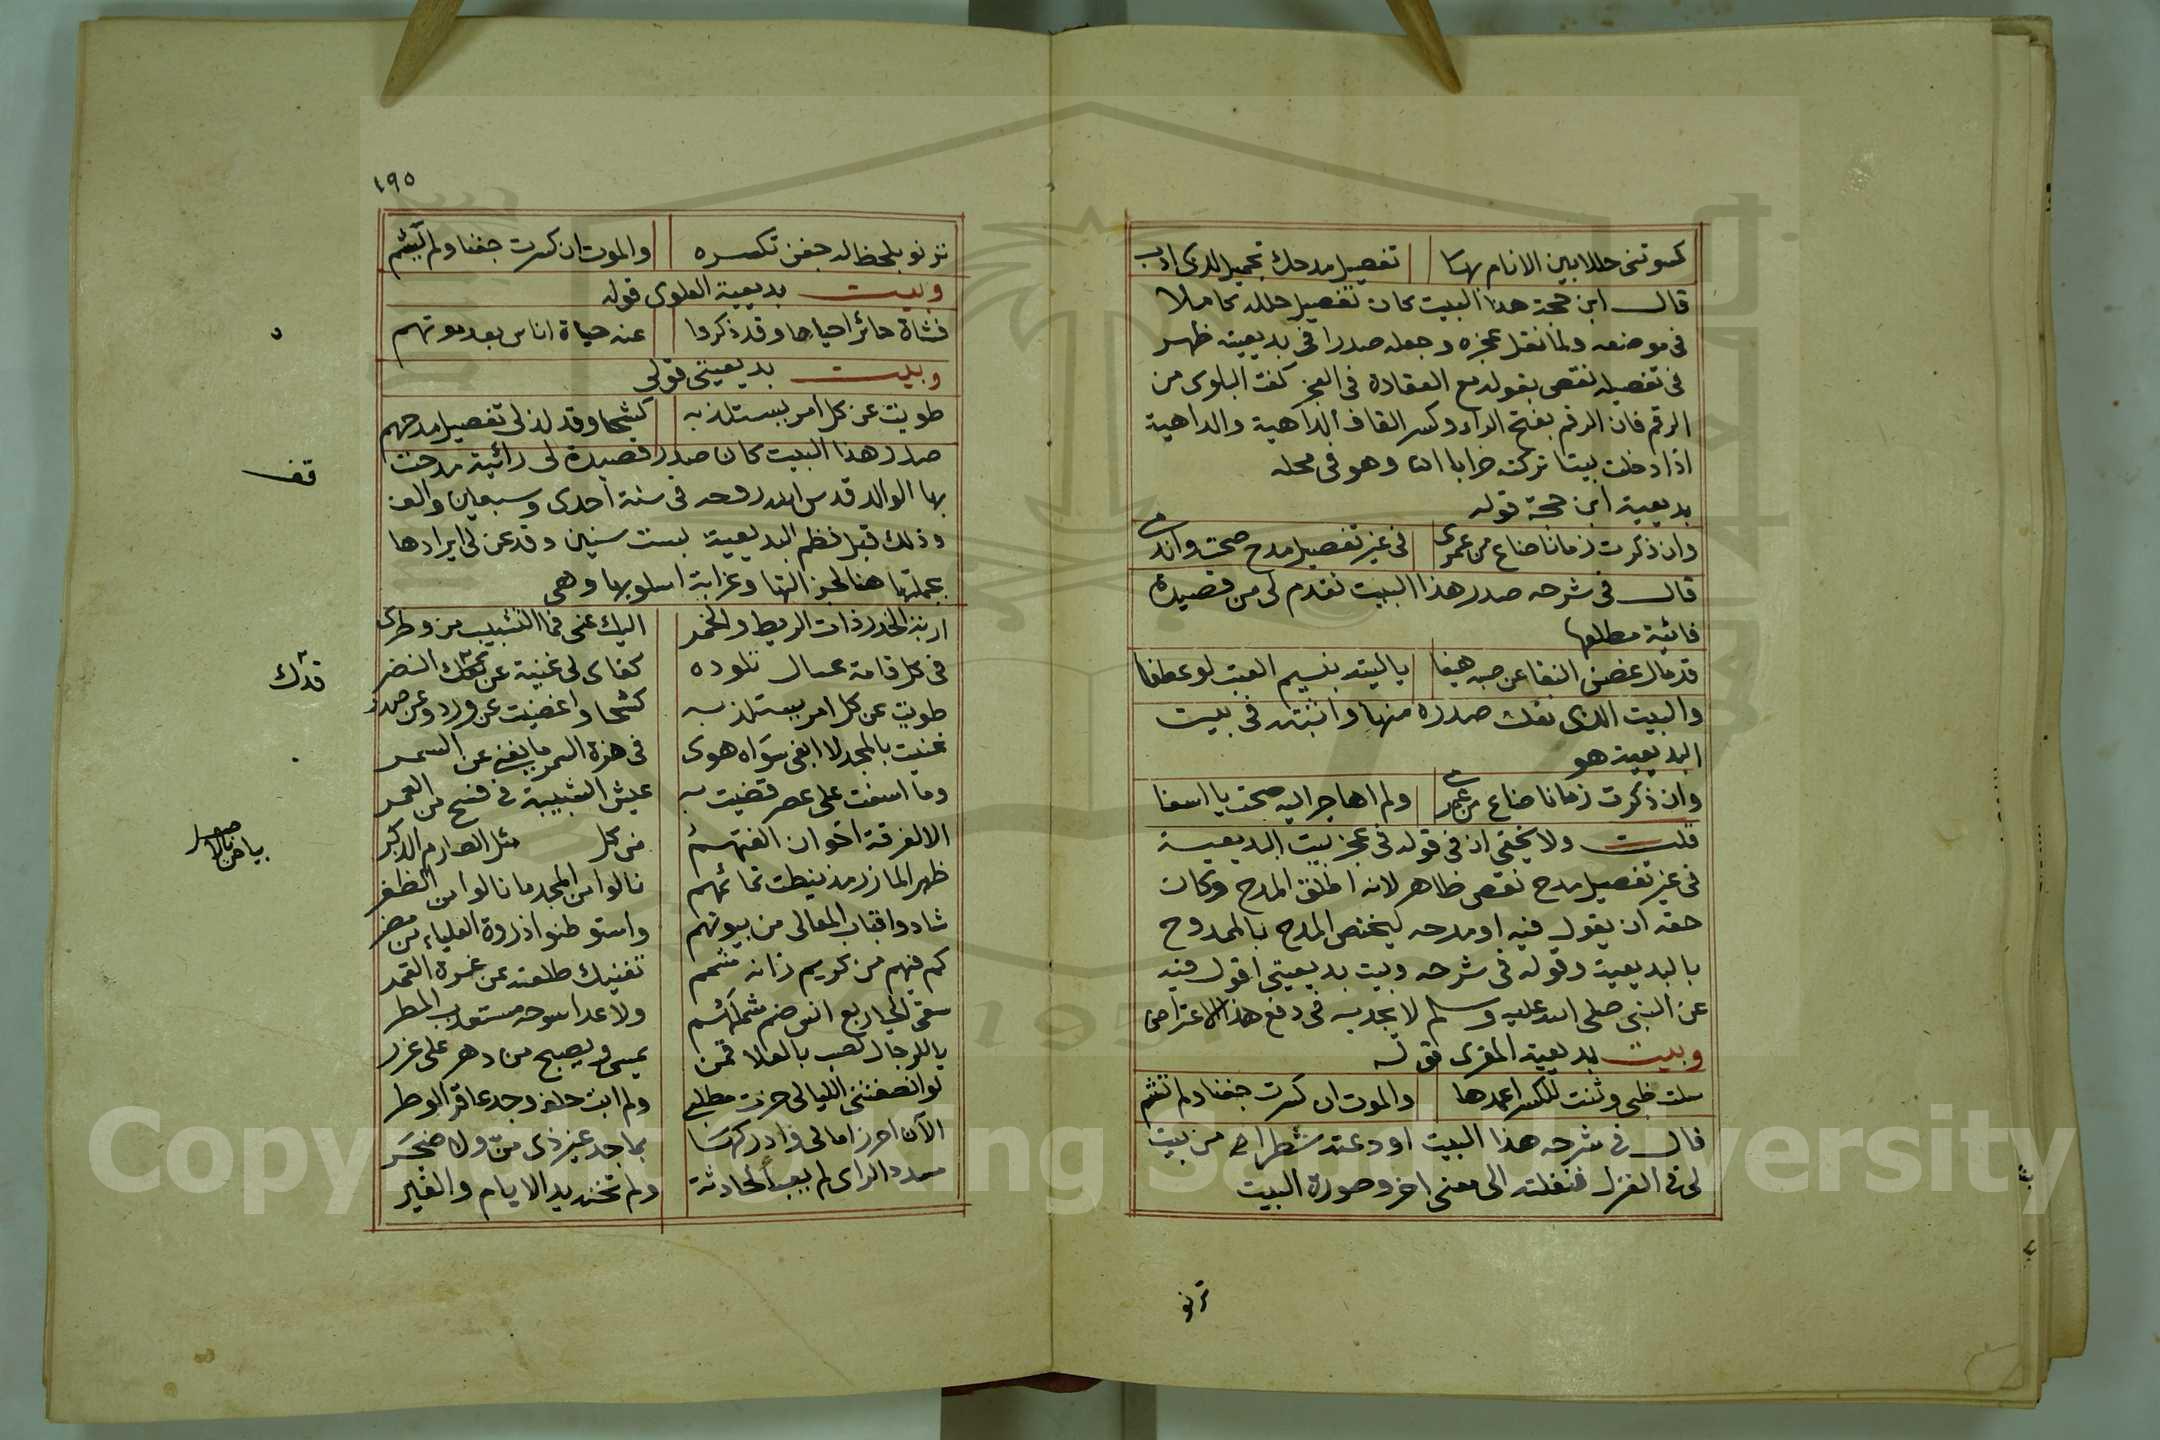 كسوتنى حللا بين الانام بها تفصيل مدحك تجميل لذى ادب
قال ابن حجة هذا البيت كان تفصيل حلله كاملا
فى موضعه ولما نقل عجزه وجعله صدرا فى بديعيته ظهر
فى تفصيله نقص بقوله مع العقادة فى العجز كفت البلوى من
الرقم فان الرقم بفتح الراء وكسر القاف الداهية والداهية
اذا دخلت بيتا تركته خرابا وهو فى محله
بديعية ابن حجة قوله
وان ذكرت زمانا ضاع من عمرى فى غير تفصيل مدح صحت واندمى
قال فى شرحه صدر هذا البيت تقدم لى من قصيدة
فائية مطلعها
قد مال غصن النقا عن صبه هيفا يا ليته بنسيم العتب لو عطفا
والبيت الذى نقلت صدره منها واثبته فى بيت
البديعية هو
وان ذكرت زمانا ضاع من عمرى ولم اهاجر اليه صحت يا اسفا
قلت ولا يخفى ان فى قوله فى عجز بيت البديعية
فى غير تفصيل مدح نقص ظاهر لانه اطلق المدح وكان
حقه ان يقول فيه او مدحه ليختص المدح بالممدوح
بالبديعية وقوله فى شرحه وبيت بديعيتى اقول فيه
عن النبى صلى الله عليه وسلم لا يجديه فى دفع هذا الاعتراض
وبيت بديعية المقرى قوله
سلت ظبى وثنت للكسر اغمدها والموت ان كسرت جفنا ولم تشم
قال فى شرحه هذا البيت اودعته شطرا من بيت
لى فى الغزل فنقلته الى معنى اخر وصورة البيت
ترنو
١٩٥
ترنو بلحظ له جفن تكسره والموت ان كسرت جفنا ولم تشم
وبيت بديعية العلوى قوله
فشاة جائز احياها وقد ذكروا عنه حياة اناس بعد موتهم
وبيت بديعيتى قولى
طويت عن كل امر يستلذ به كشحا وقد لذ لى تفصيل مدحهم
صدر هذا البيت كان صدر قصيدة لى رائية مدحت
بها الوالد قدس الله روحه فى سنة احدى وسبعين والف
وذلك قبل نظم البديعية بست سنين وقد عن لى ايرادها
بجملتها هنا لجزالتها وغرابة اسلوبها وهى
اربة الخدر ذات الريط والخمر اليك عنى فما التشبيب من وطرى
فى كل قامة عسال تاوده كفاى لى غنية عن قدك النضر
طويت عن كل امر يستلذ به كشحا واغضيت عن ورد وعن صدر
غنيت بالمجد لا ابغى سواه هوى فى هزة السمر ما يغنى عن السمر
وما اسفت على عصر قضيت به عيش الشبيبة فى فسح من العمر
الا لفرقة اخوان الفتهم من كل مثل الصارم الذكر
ظهر المازر مذ نيطت تمائمهم نالوا من المجد ما نالوا من الظفر
شادوا قباب المعالى من بيوتهم واستوطنوا ذروة العلياء من مضر
كم فيهم من كريم زانه شمم تغنيك طلعته عن غرة القمر
سقى الحيا ربع انس ضم شملهم ولا عدا سوحه مستعذب المطر
يا للرجال لصب بالعلا قمن يمسى ويصبح من دهر على غرر
لو انصفتنى الليالى حزت مطلبى ولم ابت حلف وجد عاقر الوطر
الآن احرز امالى وادركها بماجد غير ذى من ولا ضجر
مسدد الراى لم يعبأ لحادثة ولم تخنه يد الايام والغير
قف
قدك
بياض بالاصل